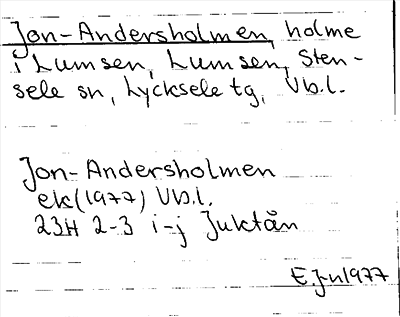 Jon-Andersholmen, holme
i Lumsen, Lumsen, Sten-
sele sn, Lycksele tg, Vb.l.
Jon-Andersholmen
ek(1977) Vb.l.
23H 2-3 i-j Juktån
E.J-n1977